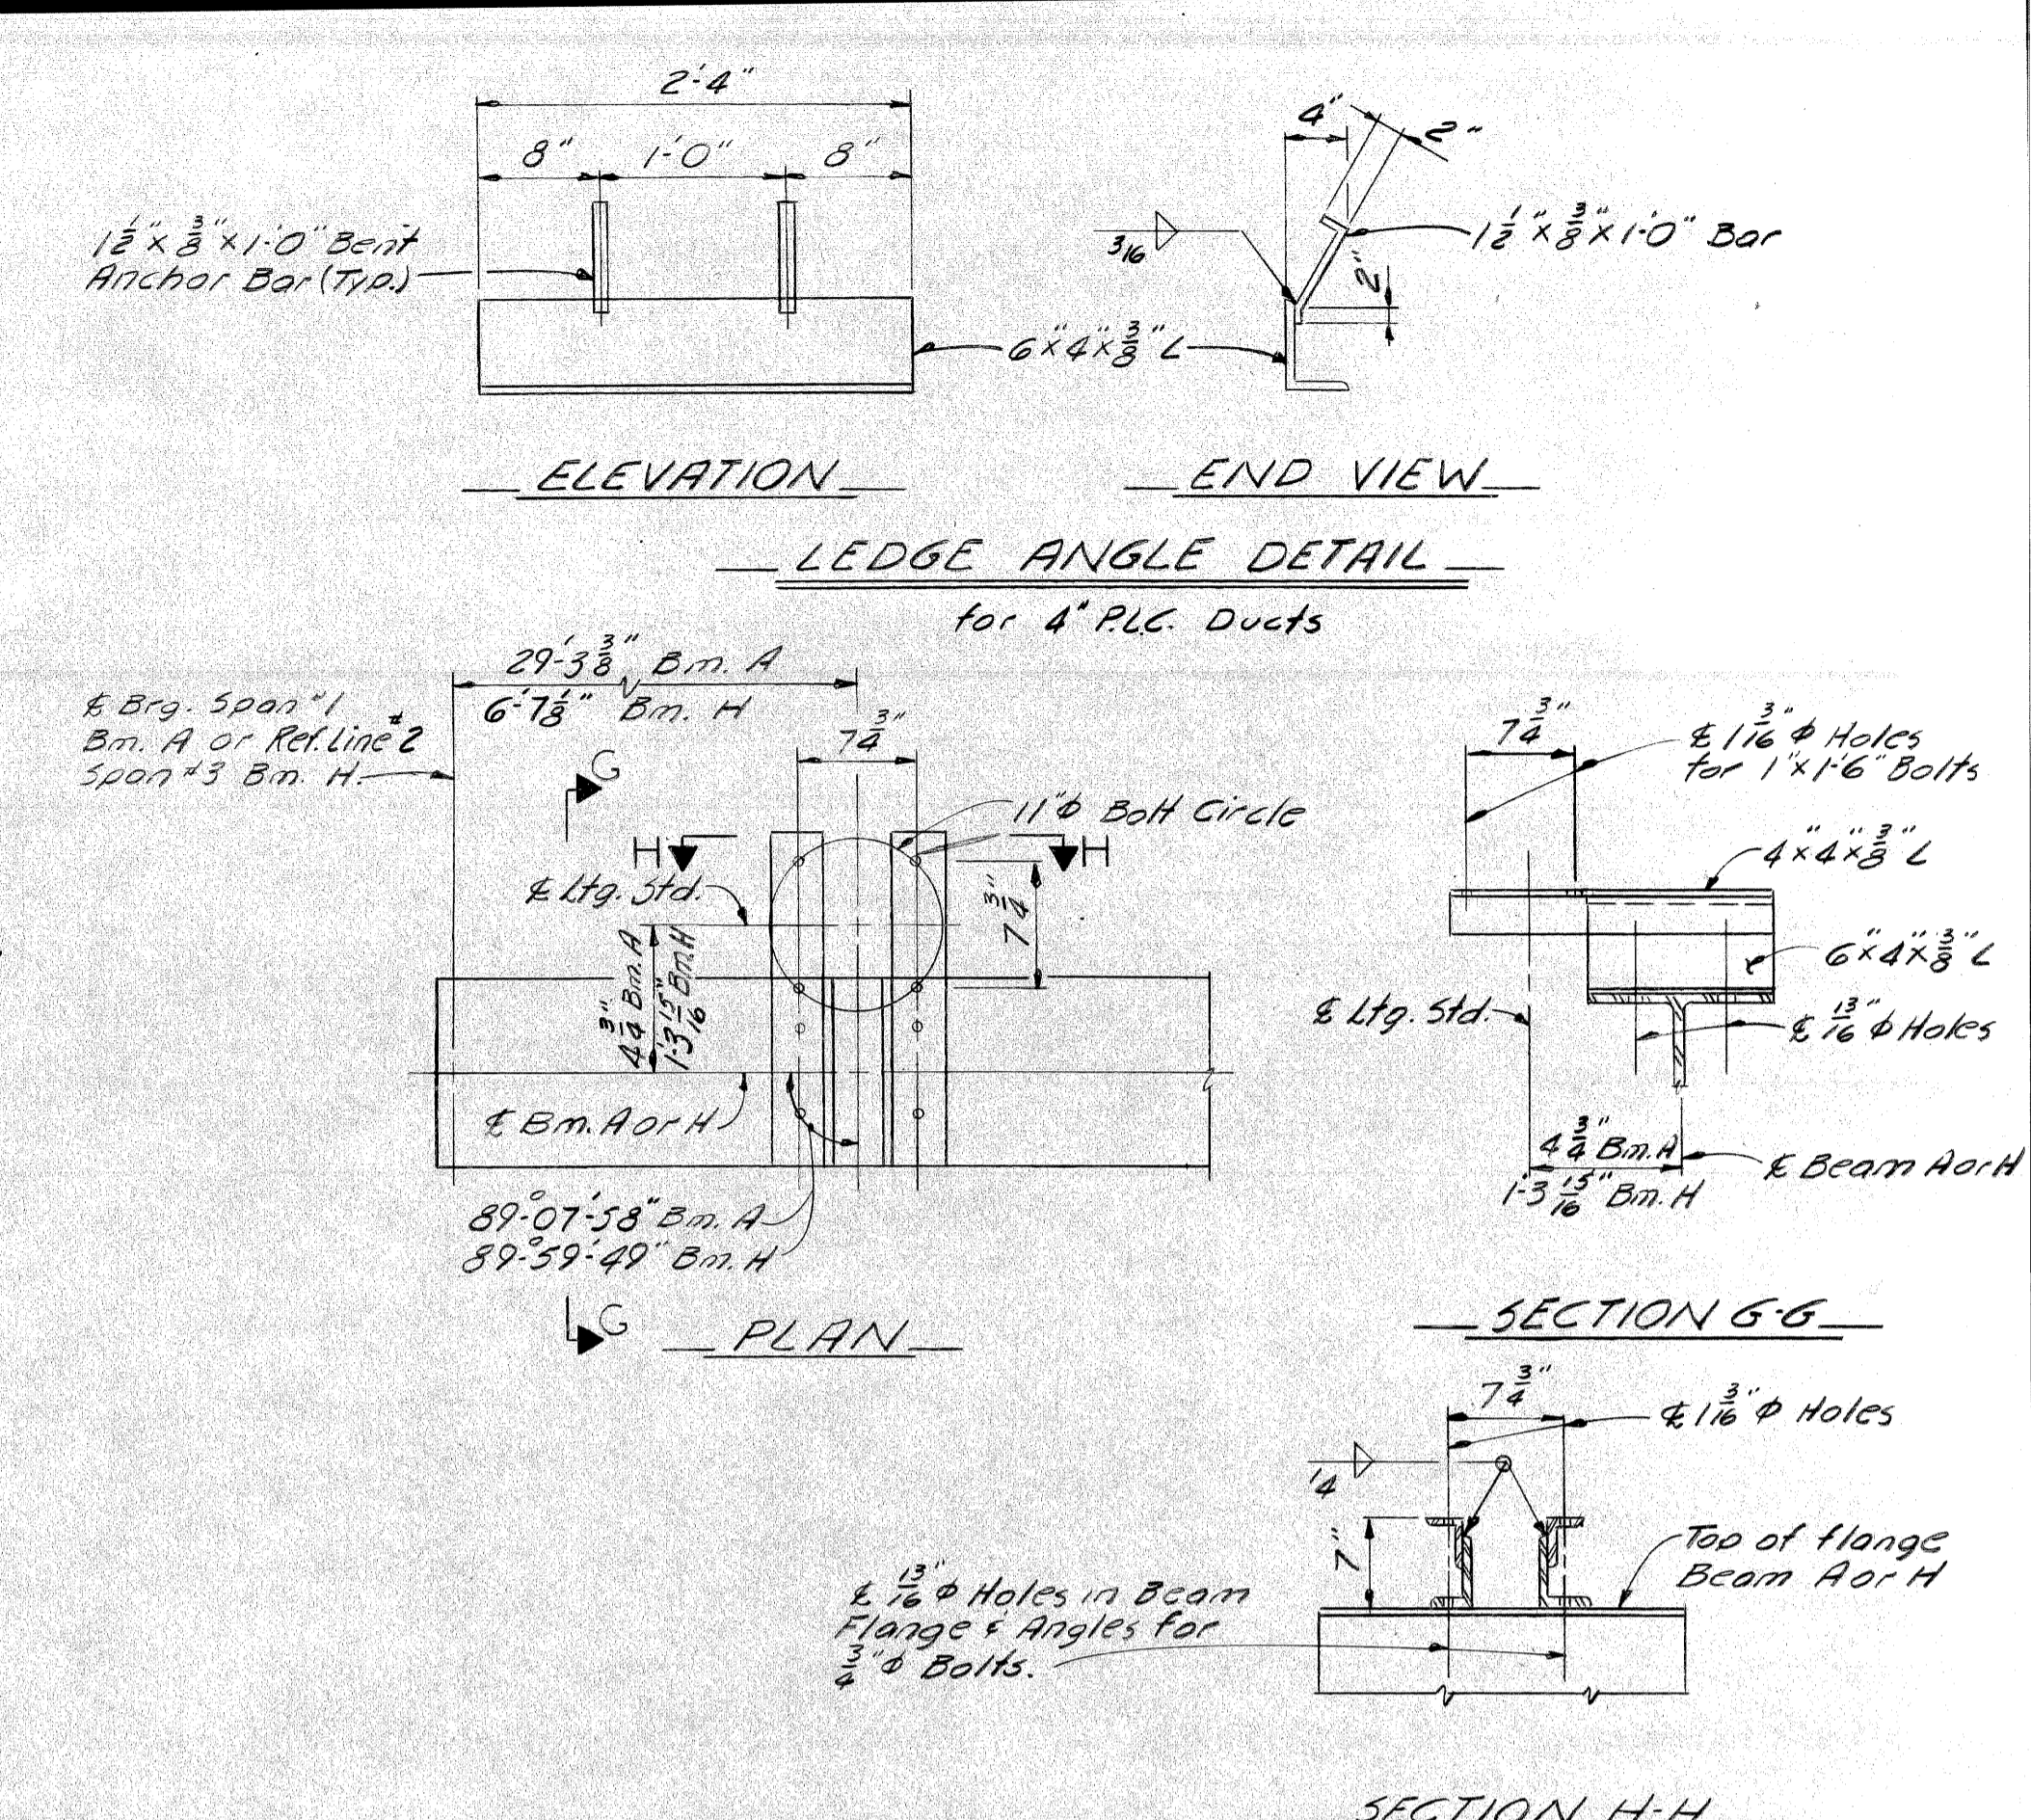 2'-4"
8" 1'-0" 8"
1 1/2" x 3/8" x 1'-0" Bent
Anchor Bar (Typ.)
4" 2"
3/16
1 1/2" x 3/8" x 1'-0" Bar
2"
6" x 4" x 3/8" L
ELEVATION
END VIEW
LEDGE ANGLE DETAIL
for 4" P.L.C. Ducts
29'-3 3/8" Bm. A
6'-7 1/8" Bm. H
℄ Brg. Span #1
Bm. A or Ref. Line #2
Span #3 Bm. H.
7 3/4"
G
11"ϕ Bolt Circle
H H
℄ Ltg. Std.
7 3/4"
4 3/4" Bm. A
1'-3 15/16" Bm. H
℄ Bm. A or H
89°-07'-58" Bm. A
89°-59'-49" Bm. H
G
PLAN
7 3/4"
℄ 1 3/16" ϕ Holes
for 1" x 1'-6" Bolts
4" x 4" x 3/8" L
6" x 4" x 3/8" L
℄ Ltg. Std.
℄ 13/16" ϕ Holes
4 3/4" Bm. A
1'-3 15/16" Bm. H
℄ Beam A or H
SECTION G-G
7 3/4"
℄ 1 3/16" ϕ Holes
1/4
7"
Top of flange
Beam A or H
℄ 13/16" ϕ Holes in Beam
Flange & Angles for
3/4" ϕ Bolts.
SECTION H-H